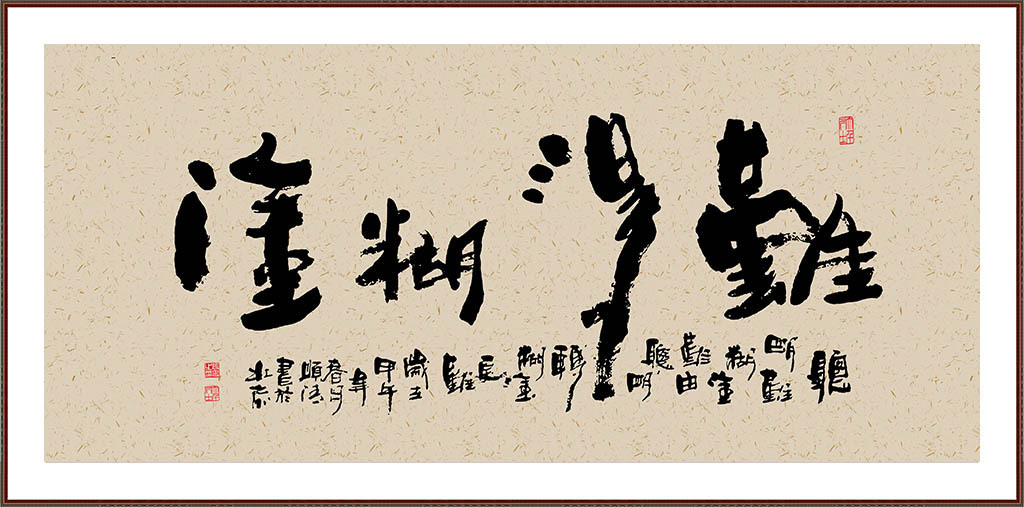 難得糊塗
聰明難糊塗難由聰明轉糊塗更難歲在甲午年春月順書於北京